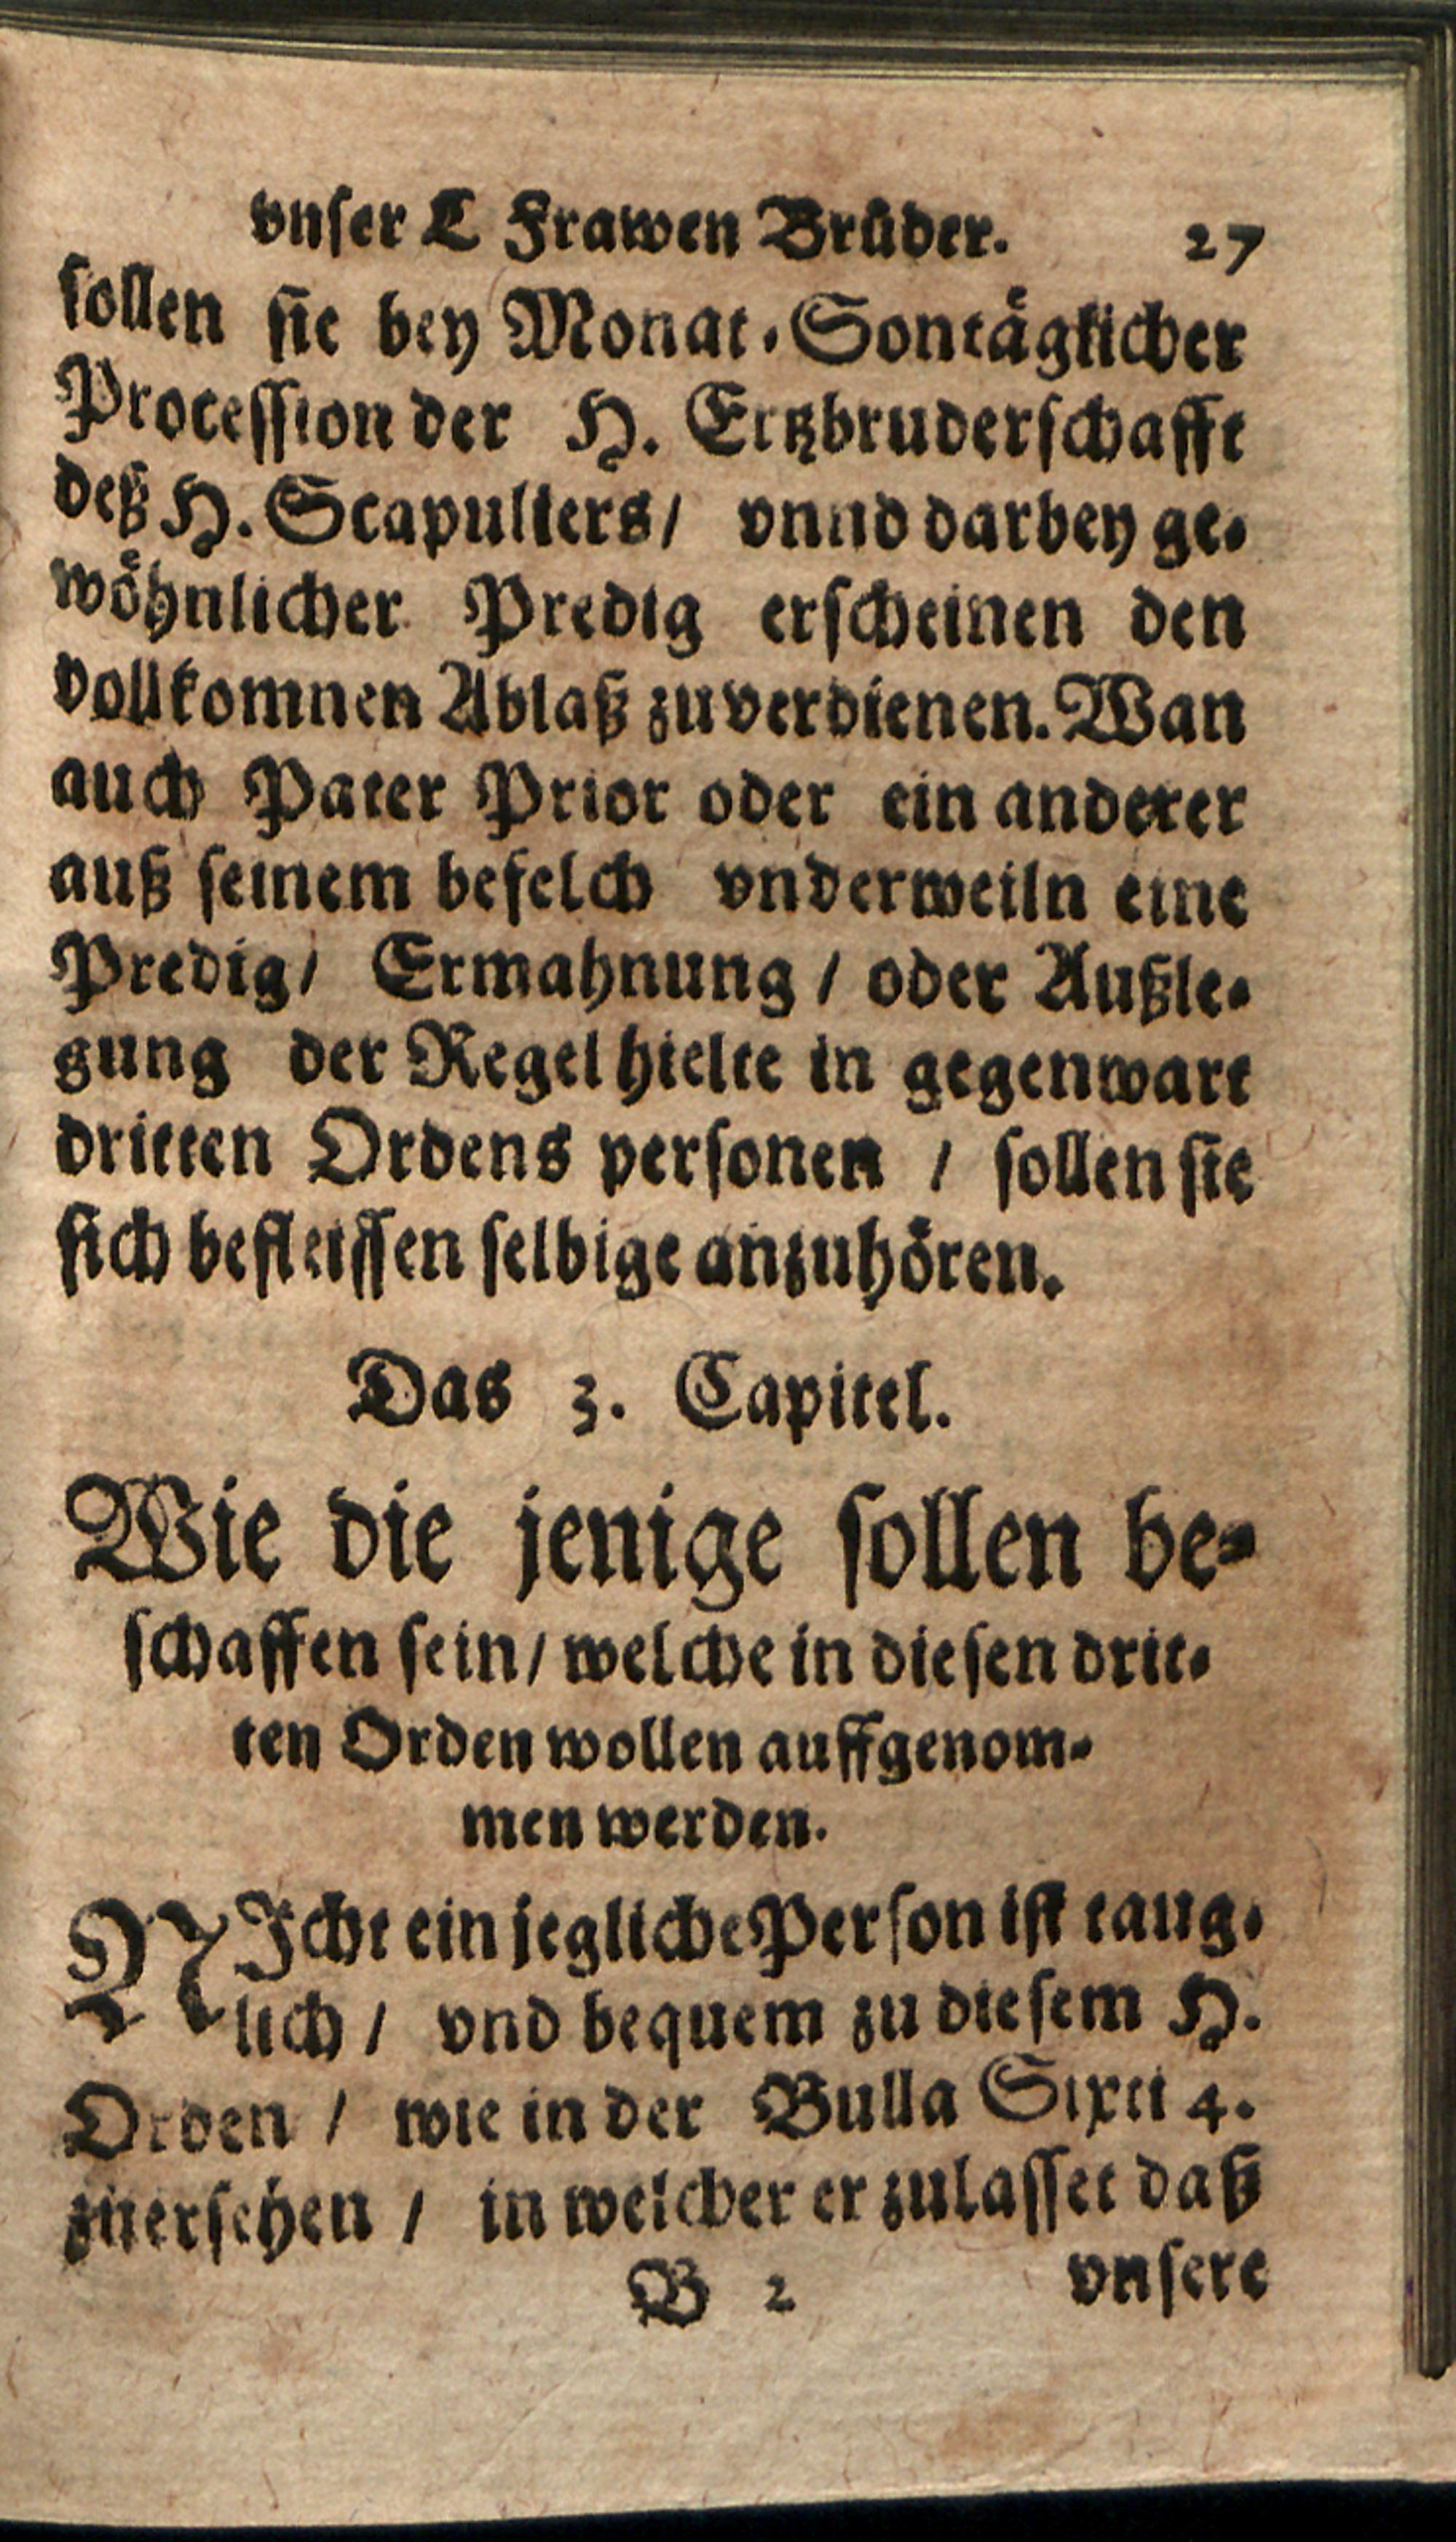 vnser L Frawen Bruͤder. 27
sollen sie bey Monat-Sontaͤglicher
Procession der H. Ertzbruderschafft
deß H. Scapuliers/ vnnd darbey ge-
woͤhnlicher Predig erscheinen den
vollkomnen Ablaß zuverdienen. Wan
auch Pater Prior oder ein anderer
auß seinem befelch vnderweiln eine
Predig/ Ermahnung / oder Außle-
gung der Regel hielte in gegenwart
dritten Ordens personen / sollen sie
sich befleissen selbige anzuhoͤren.
Das 3. Capitel.
Wie die jenige sollen be-
schaffen sein/ welche in diesen drit-
ten Orden wollen auffgenom-
men werden.
NIcht ein jegliche Person ist taug-
lich / vnd bequem zu diesem H.
Orden / wie in der Bulla Sixti 4.
zuersehen / in welcher er zulasset daß
B 2 vnsere